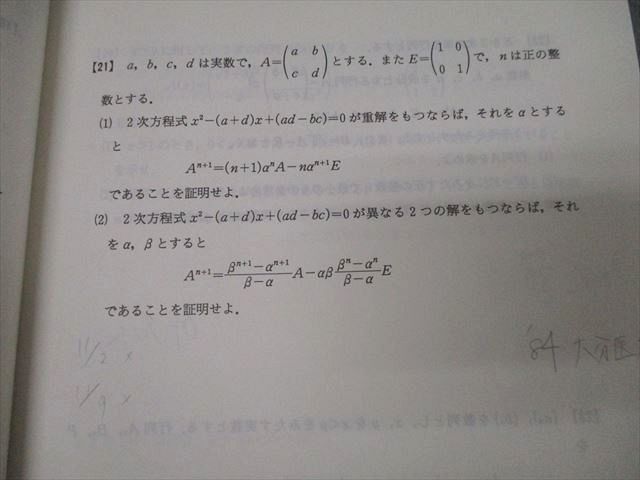 【21】 a, b, c, d は実数で, A=(a b c d) とする. また E=(1 0 0 1) で, n は正の整
数とする.
(1) 2次方程式 x²−(a+d)x+(ad−bc)=0 が重解をもつならば, それを α とする
と
Aⁿ⁺¹=(n+1)αⁿA−nαⁿ⁺¹E
であることを証明せよ.
(2) 2次方程式 x²−(a+d)x+(ad−bc)=0 が異なる2つの解をもつならば, それ
を α, β とすると
Aⁿ⁺¹=(βⁿ⁺¹−αⁿ⁺¹)/(β−α) A−αβ (βⁿ−αⁿ)/(β−α) E
であることを証明せよ.
11/2 ×
'84 大分医
11/9 ×